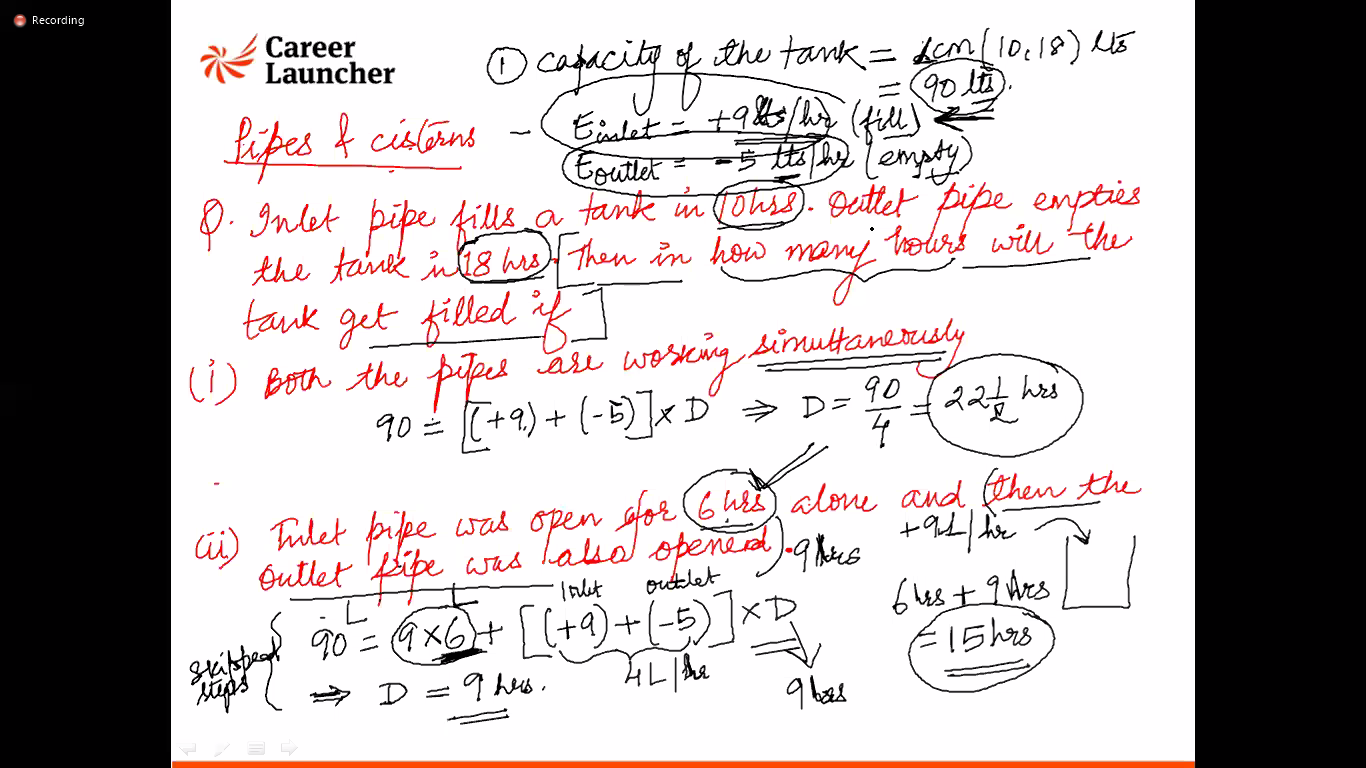 Recording
Career
Launcher
① Capacity of the tank = Lcm(10,18) lts
= 90 lts.
Pipes & cisterns - Einlet = +9 lts/hr (fill)
Eoutlet = -5 lts/hr (empty)
Q. Inlet pipe fills a tank in 10 hrs. Outlet pipe empties
the tank in 18 hrs. Then in how many hours will the
tank get filled if
(i) Both the pipes are working simultaneously
90 = [(+9) + (-5)] × D ⇒ D = 90/4 = 22 1/2 hrs
(ii) Inlet pipe was open for 6 hrs alone and then the
outlet pipe was also opened.
9 hrs
+9L/hr
Inlet outlet
L L
90 = 9×6 + [(+9) + (-5)] × D
4L/hr
9 hrs
skipped
steps
⇒ D = 9 hrs.
6 hrs + 9 hrs
= 15 hrs